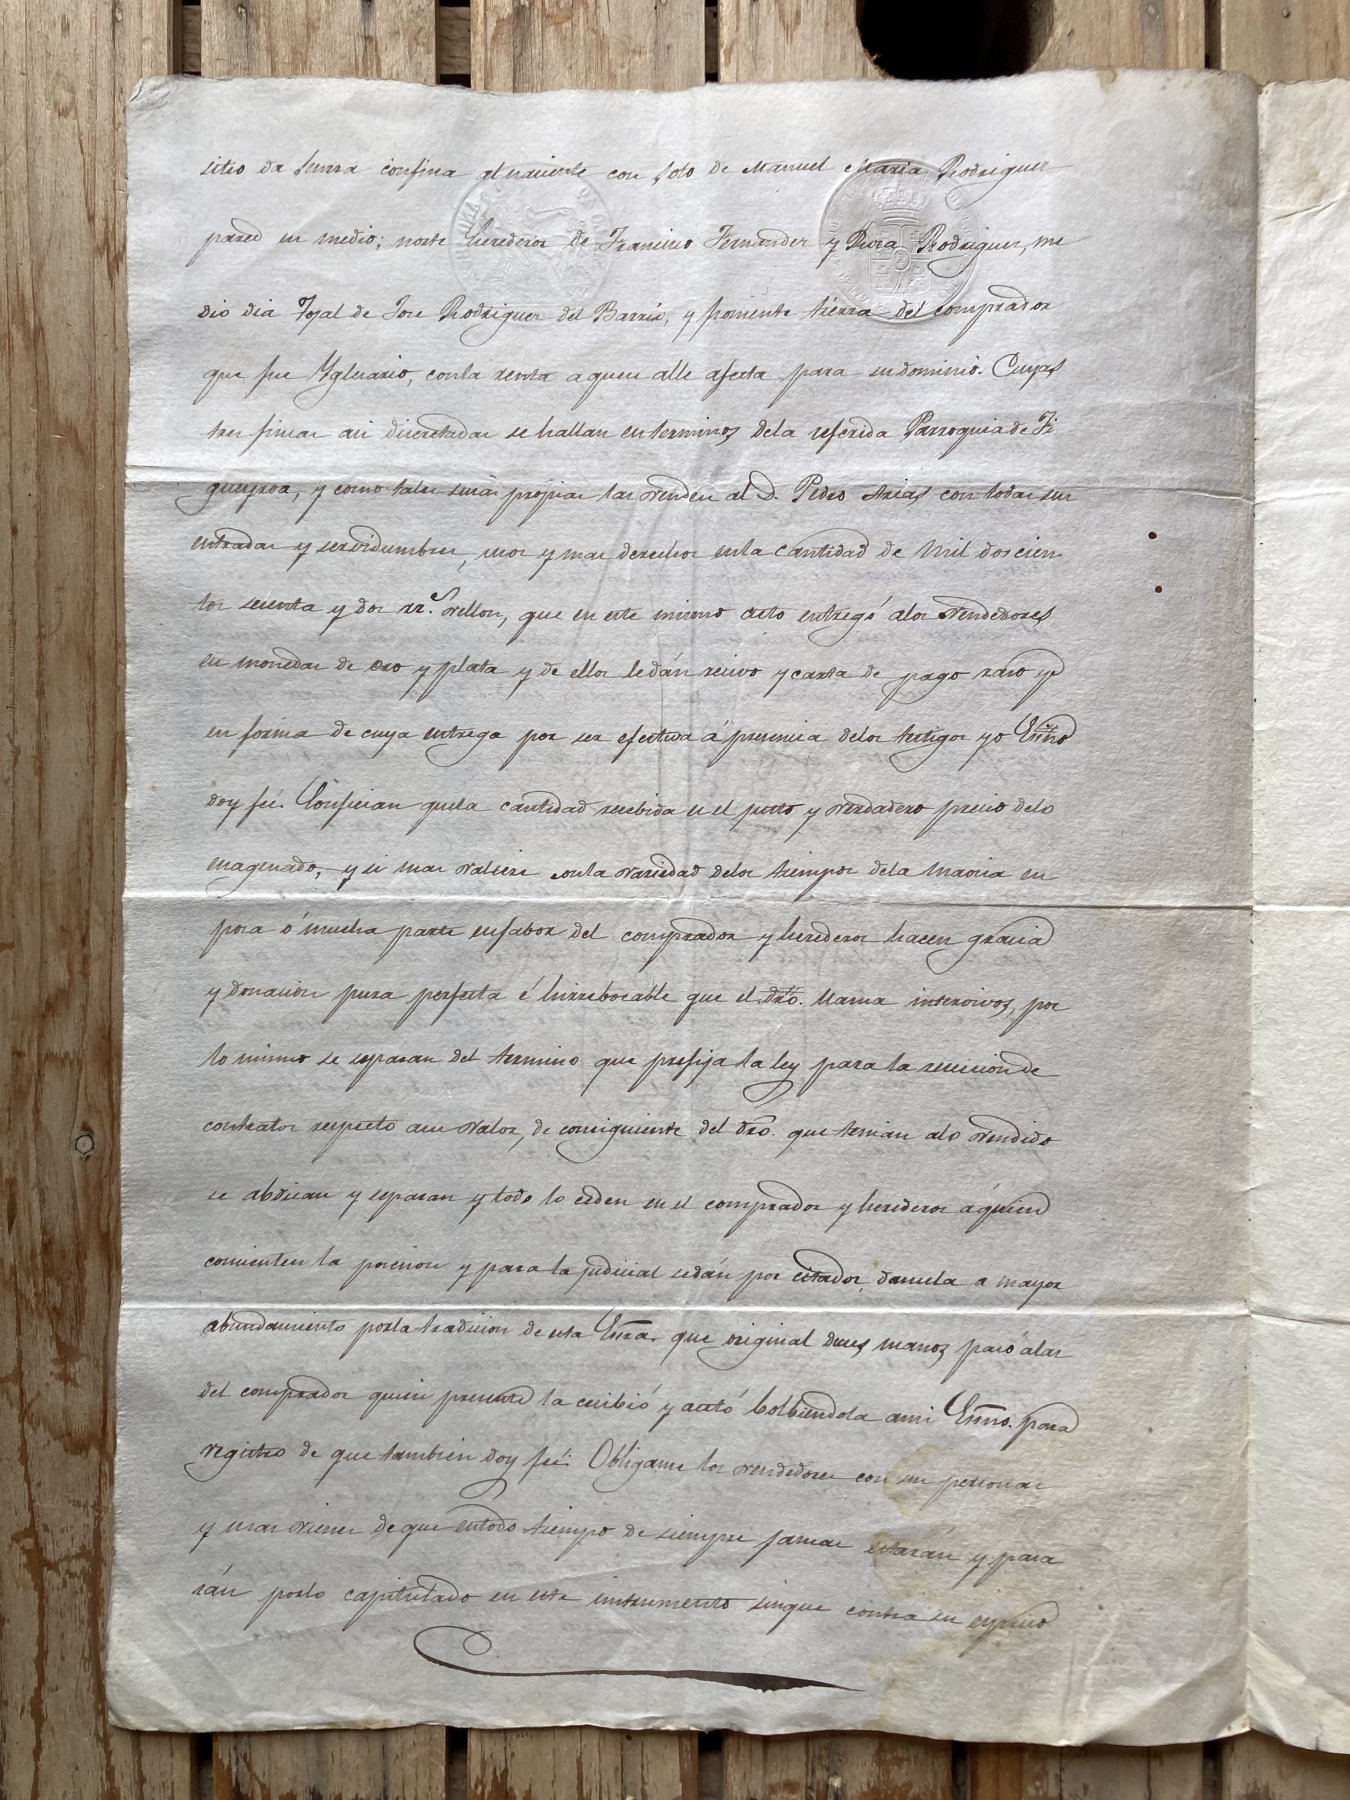 sitio da Senra confina al naciente con soto de Manuel Maria Rodriguez
pared en medio; norte herederos de Francisco Fernandez y Rosa Rodriguez, me
dio dia Tojal de Jose Rodriguez del Barrio, y poniente tierra del comprador
que fue Yglesario, con la renta a quen alle afecta para su dominio. Cuyas
tres fincas asi discretadas se hallan en terminos dela referida Parroquia de Fi
gueyroa, y como tales suias propias las venden al D. Pedro Arias con todas sus
entradas y servidumbres, usos y mas derechos en la cantidad de mil dos cien
tos sesenta y dos rr.s vellon, que en este mismo acto entregó alos vendedores
en monedas de oro y plata y de ellos le dán recivo y carta de pago raso y
en forma de cuya entrega por ser efectiva á presencia delos testigos yo Essno
doy fé. Confiesan que la cantidad recibida es el justo y verdadero precio delo
enagenado, y si mas valiere con la variedad delos tiempos dela maoria en
poca ó mucha parte en fabor del comprador y herederos hacen gracia
y donacion pura perfecta é hirrebocable que el dro. llama intervivos, por
lo mismo se separan del termino que prefija la ley para la recicion de
contratos respecto asu valor, de consiguiente del dro. que tenian alo vendido
se abdican y separan y todo lo ceden en el comprador y herederos á quien
consienten la posesion y para la judicial se dán por citados, dansela a mayor
abundamiento por la tradicion de esta Essra. que original desus manos pasó alas
del comprador quien presente la recibió y acetó bolbiendola a mi Essno. para
registro de que tambien doy fé. Obliganse los vendedores con sus personas
y mas vienes de que en todo tiempo de siempre jamas estarán y pasa
rán por lo capitulado en este instrumento sin que contra su espreso